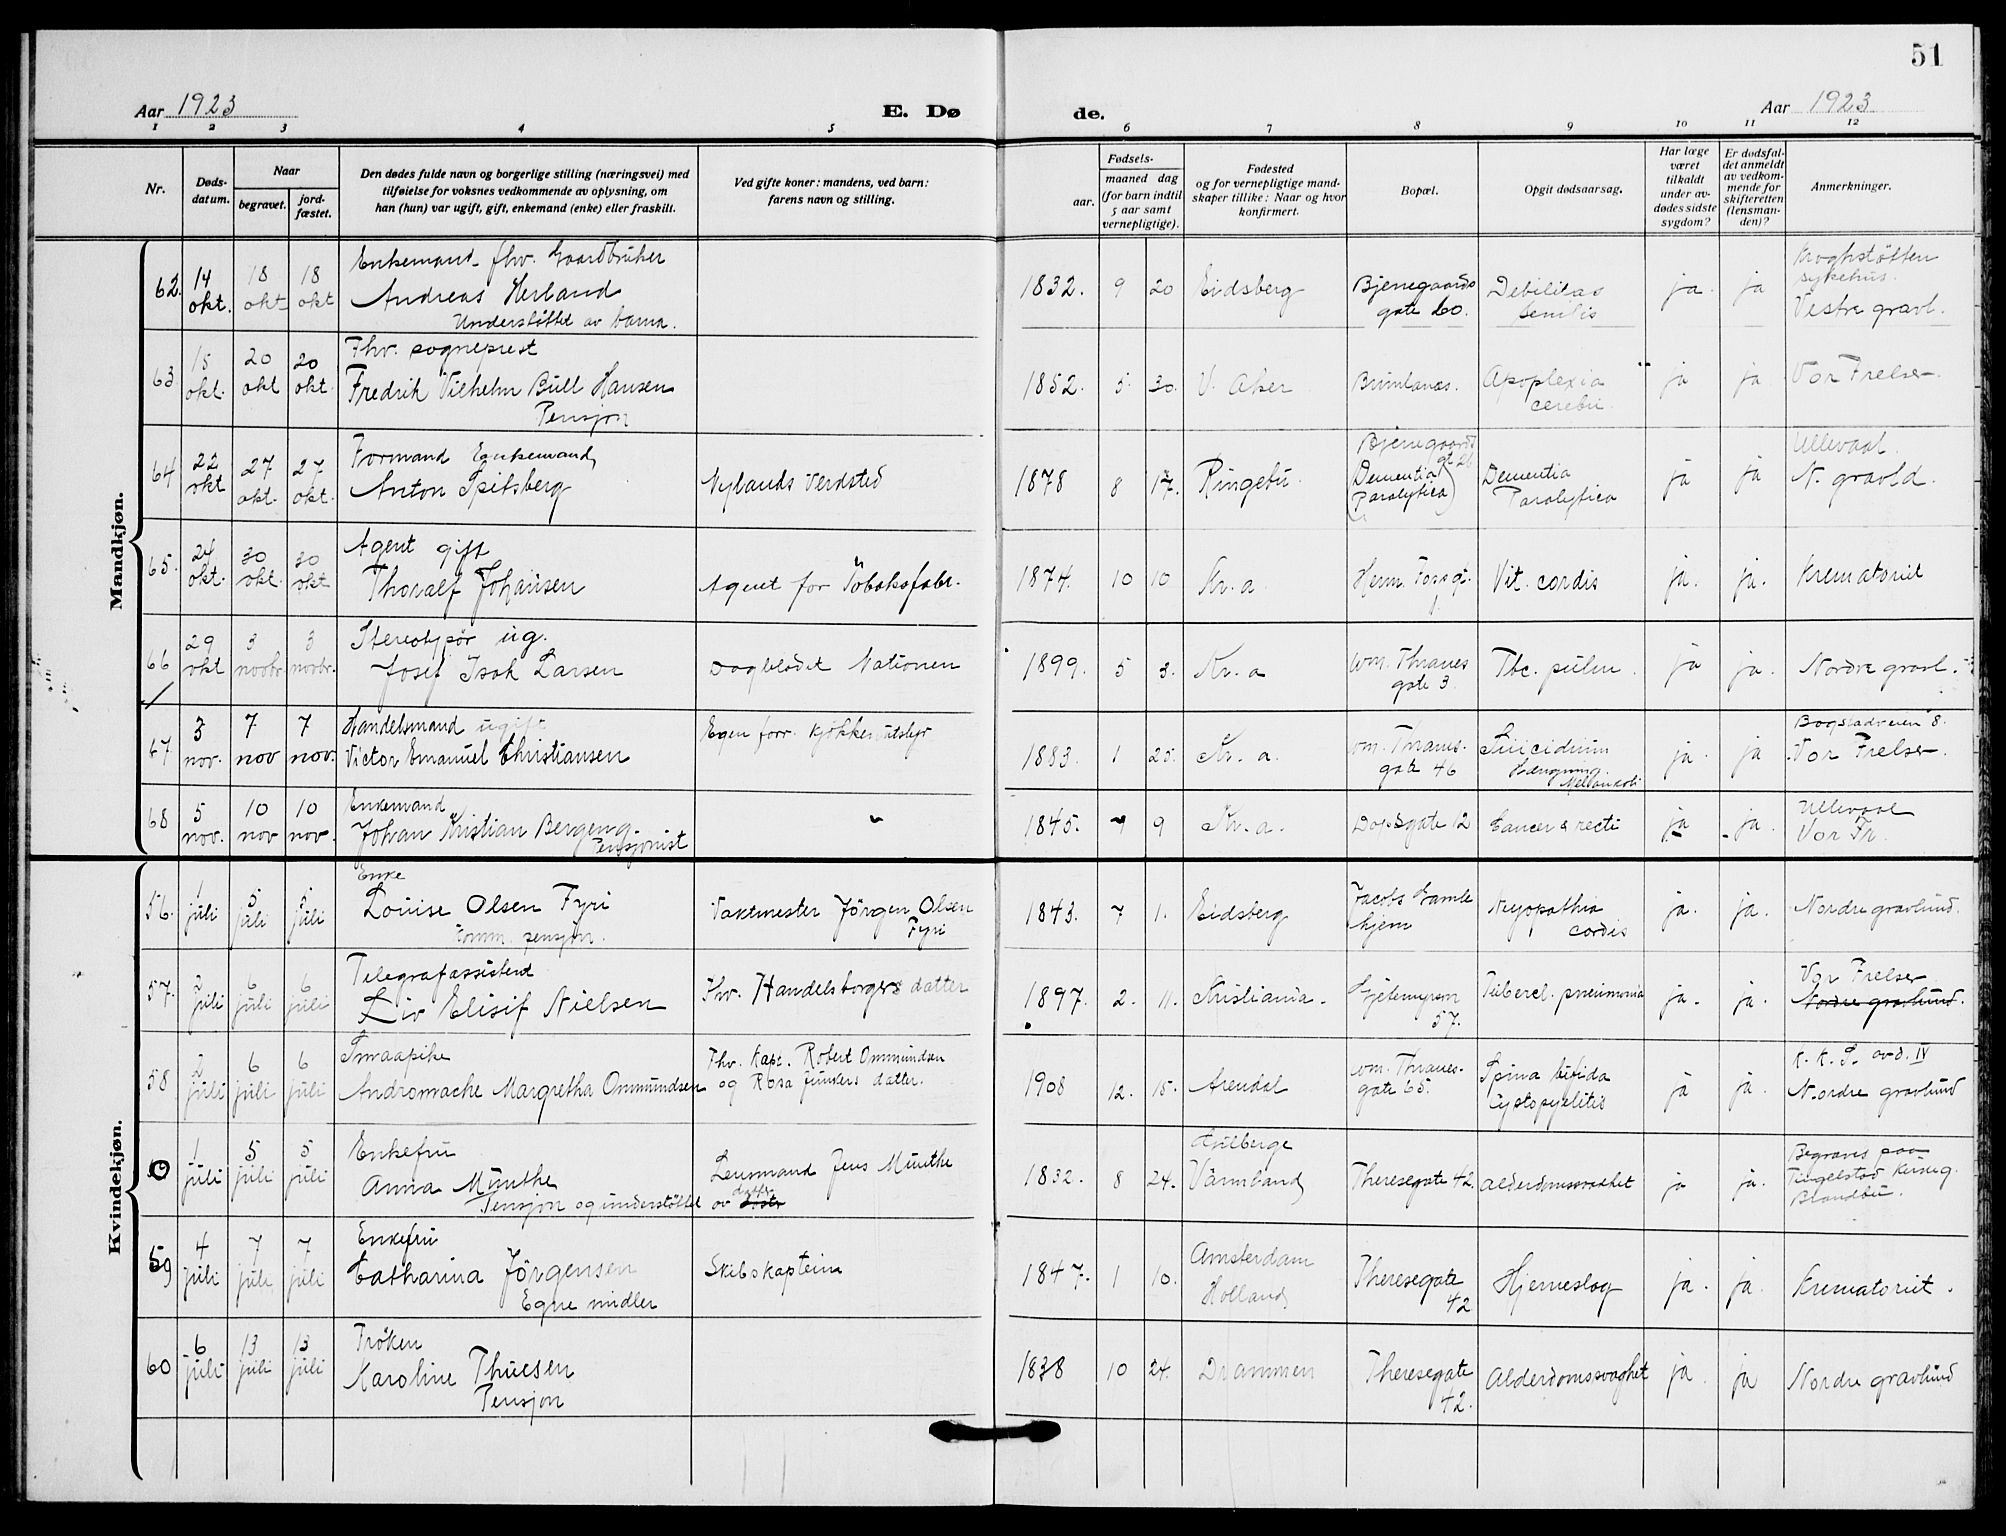 51
Aar 1923
E. Dø
de.
Aar 1923
1 2 3 4 5 6 7 8 9 10 11 12
Nr.
Døds-
datum.
Naar
begravet.
jord-
fæstet.
Den dødes fulde navn og borgerlige stilling (næringsvei) med
tilføielse for voksnes vedkommende av oplysning, om
han (hun) var ugift, gift, enkemand (enke) eller fraskilt.
Ved gifte koner: mandens, ved barn:
farens navn og stilling.
Fødsels-
aar.
maaned dag
(for barn indtil
5 aar samt
vernepligtige).
Fødested
og for vernepligtige mand-
skaper tillike: Naar og hvor
konfirmert.
Bopæl.
Opgit dødsaarsag.
Har læge
været
tilkaldt
under av-
dødes sidste
sygdom?
Er dødsfal-
det anmeldt
av vedkom-
mende for
skifteretten
(lensman-
den)?
Anmerkninger.
Mandkjøn.
62. 14 okt. 18 okt 18 okt
Enkemand fhv. Gaardbruker
Andreas Herland
Understøttet av barna.
1832. 9 20 Eidsberg
Bjerregaards
gate 60.
Debilitas
senilis
ja ja
Kroghstøtten
sykehus.
Vestre gravl.
63 15 okt. 20 okt 20 okt.
Fhv. sogneprest
Fredrik Vilhelm Bull Hansen
Pensjon
1852. 5. 30. V. Aker
Apoplexia
cerebri.
ja ja
Vor Frelser.
64 22 okt 27 okt. 27 okt.
Formand Enkemand
Anton Spitsberg
Nylands Verdsted
1878 8 17. Ringebu
Bjerregaards
gt 26
(Dementia
Paralytica)
Dementia
Paralytica
ja ja
Ullevaal
N. gravld.
65. 24 okt. 30 okt. 30 okt
Agent gift
Thoralf Johansen
Agent for Tobaksfabr.
1874. 10 10 Kr.a
Herm. Fossgt.
1.
Vit. cordis
ja. ja.
Krematoriet
66 29 okt 3 novbr. 3 novbr.
Stereotypør ug.
Josef Isak Larsen
Dagbladet Nationen
1899. 5 3. Kr.a
Wm. Thranes
gate 3
Tbc. pulm.
ja ja.
Nordre gravl.
67 3 nov. 7 nov 7 nov.
Handelsmand ugift
Victor Emanuel Christiansen
Egen forr. Kjøkkenutstyr
1883. 1 25. Kr.a.
Wm. Thranes-
gate 46
Suicidium
Hængning
Mellankoli
ja ja
Bogstadveien 8.
Vor Frelser.
68 5 nov. 10 nov 10 nov.
Enkemand
Johan Kristian Bergeng.
Pensjonist
1845. 9 Kr.a.
Dopsgate 12
Cancer recti
ja ja.
Ullevaal
Vor Fr.
Kvindekjøn.
56. 1 juli 5 juli 5 juli
Enke
Louise Olsen Fyri
Komm. pensjon.
Vaktmester Jörgen Olsen
Fyri
1843. 7 1. Eidsberg
Jacobs Gamle
hjem
Myopathia
cordis
ja. ja.
Nordre gravlund.
57. 2 juli 6 juli 6 juli
Telegrafassistent
Liv Elisif Nielsen
Fhv. Handelsborgers datter
1897. 2. 11. Kristiania.
Gjetemyrsvn
57.
Tubercl. pneumonia
ja. ja.
Vor Frelser
Nordre gravlund.
58 2 juli 6 juli 6 juli
Smaapike
Andromache Margretha Ommundsen
Fhv. Kapt. Robert Ommundsen
og Rosa Junders datter.
1908 12. 15. Arendal
Wm. Thranes-
gate 65.
Spina bifida
Cystopyelitis
ja ja.
K. K. S. avd. IV
Nordre gravlund
1 juli 5 juli 5 juli
Enkefru
Anna Münthe
Pensjon og understøttet
Lensmand Jens Münthe
av datter
1832. 8 24.
Värmland
Theresegate 42.
Alderdomssvakhet
ja ja.
Begraves paa
Tingelstad Kirkeg.
Brandbu.
59 4 juli 7 juli 7 juli
Enkefru
Catharina Jörgensen
Egne midler
Skibskaptein
1847. 1 10.
Amsterdam
Holland
Theresegate
42
Hjerneslag
ja. ja.
Krematoriet.
60 6 juli 13 juli 13 juli
Frøken
Karoline Thuesen
Pensjon
1838 10 24. Drammen
Theresegate
42.
Alderdomssvaghet
ja ja
Nordre gravlund